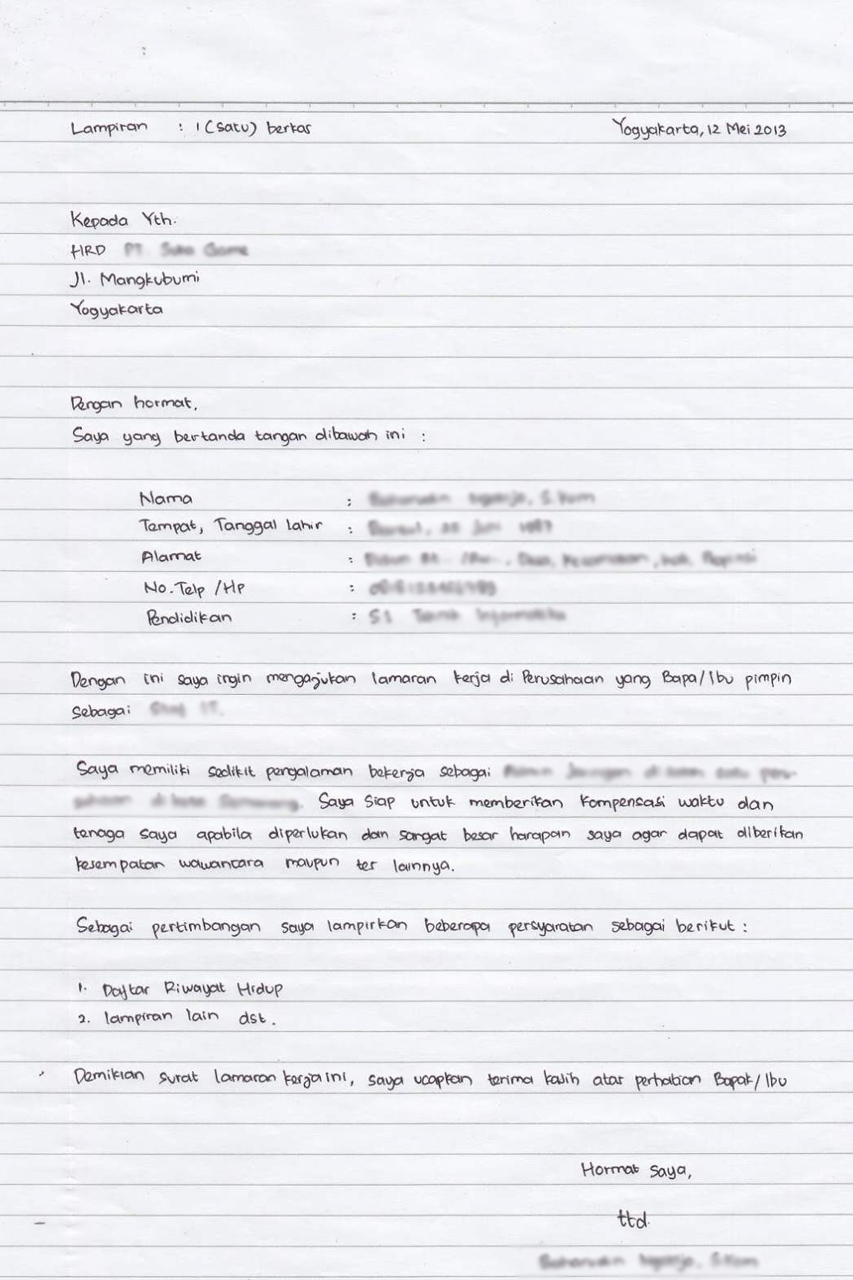 Lampiran : 1 (satu) berkas Yogyakarta, 12 Mei 2013
Kepada Yth.
HRD
Jl. Mangkubumi
Yogyakarta
Dengan hormat,
Saya yang bertanda tangan dibawah ini :
Nama :
Tempat, Tanggal lahir :
Alamat :
No. Telp /Hp :
Pendidikan :
Dengan ini saya ingin mengajukan lamaran kerja di Perusahaan yang Bapa/Ibu pimpin
sebagai
Saya memiliki sedikit pengalaman bekerja sebagai
Saya siap untuk memberikan kompensasi waktu dan
tenaga saya apabila diperlukan dan sangat besar harapan saya agar dapat diberikan
kesempatan wawancara maupun tes lainnya.
Sebagai pertimbangan saya lampirkan beberapa persyaratan sebagai berikut :
1. Daftar Riwayat Hidup
2. lampiran lain dst.
Demikian surat lamaran kerja ini, saya ucapkan terima kasih atas perhatian Bapak/Ibu
Hormat saya,
ttd.